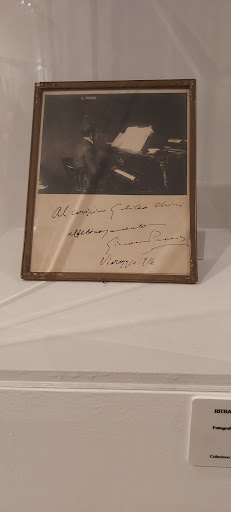 Al carissimo Galileo Chini
affettuosamente
Giacomo Puccini
Viareggio 916
RITRA
Fotograf
Collezione